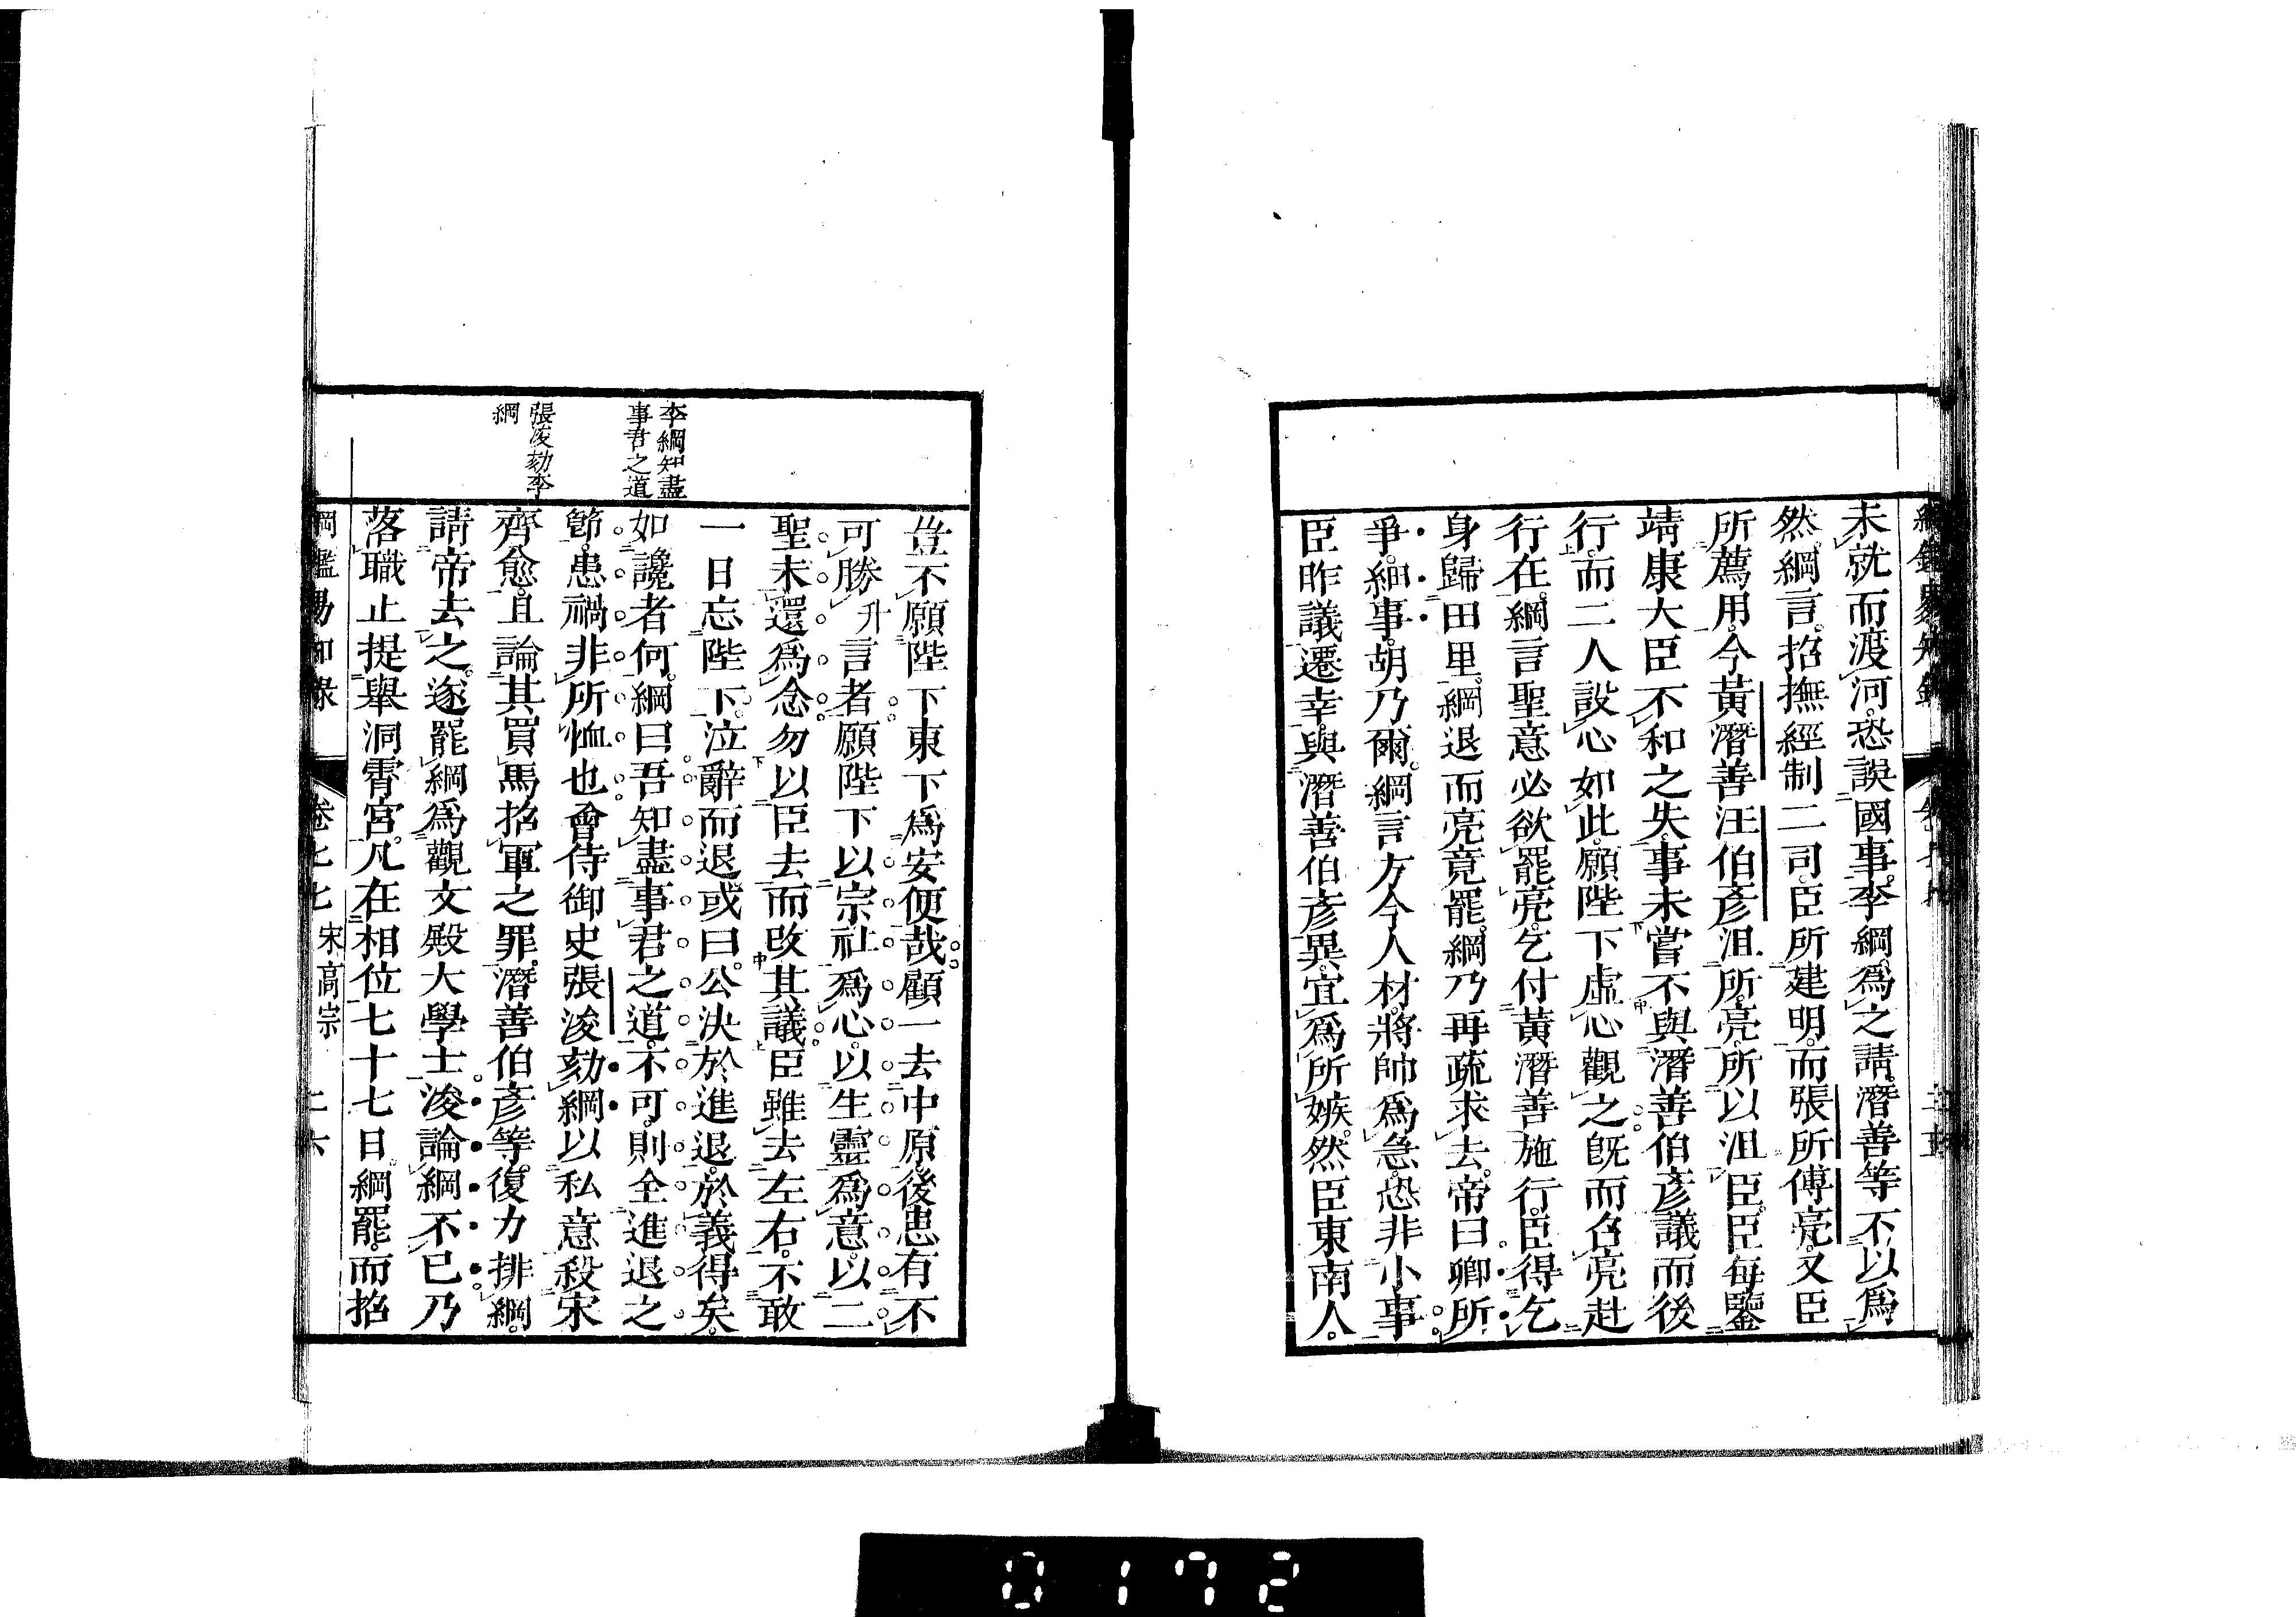 未就而渡河。恐誤國事。李綱。爲之請。潛善等不以爲
然。綱言。招撫經制二司。臣所建明。而張所傅亮。又臣
所薦用。今黃潛善汪伯彥沮所亮。所以沮臣。臣每鑒
靖康大臣不和之失。事未嘗不與潛善伯彥議而後
行。而二人設心如此。願陛下虛心觀之。既而召亮赴
行在。綱言聖意必欲罷亮。乞付黃潛善施行。臣得乞
身歸田里。綱退而亮竟罷。綱乃再疏求去。帝曰卿所
爭。細事。胡乃爾。綱言方今人材。將帥爲急。恐非小事
臣昨議遷幸。與潛善伯彥異。宜爲所嫉。然臣東南人。
李綱知盡
事君之道
張浚劾李
綱
豈不願陛下東下爲安便哉。顧一去中原。後患有不
可勝升言者願陛下以宗社爲心。以生靈爲意。以二
聖未還爲念。勿以臣去而改其議。臣雖去左右。不敢
一日忘陛下。泣辭而退。或曰。公決於進退。於義得矣。
如讒者何。綱曰吾知盡事君之道。不可。則全進退之
節。患禍非所恤也。會侍御史張浚劾綱以私意殺宋
齊愈。且論其買馬招軍之罪。潛善伯彥等。復力排綱。
請帝去之。遂罷綱爲觀文殿大學士。浚論綱不已。乃
落職止提舉洞霄宮。凡在相位七十七日。綱罷。而招
綱鑑易知錄 卷七七 宋高宗 二六
0172